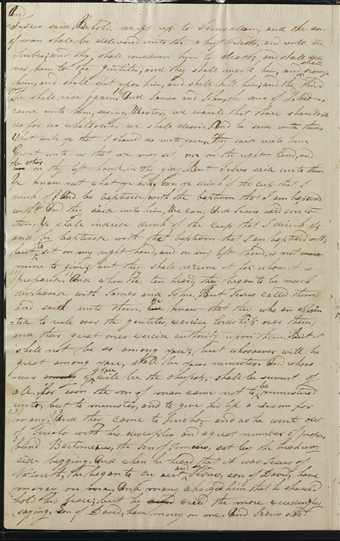 And
Jesus said, Behold we go up to Jerusalem, and the son
of man shall be delivered unto the chief Priests, and unto the
Scribes; and they shall condemn him to death; and shall
him to the gentiles; and they shall mock him, and scourge
him, and shall spit upon him, and shall kill him; and the third
he shall rise again; And James and John, the sons of Zebedee,
came unto him, saying, Master, we would that thou shouldest
do for us whatsoever we shall desire. And he said unto them
What will ye that I should do unto you; They said unto him
Grant unto us that we may sit, one on thy right hand, and
the other
on thy left hand, in thy glory. But Jesus said unto them
Ye know not what ye ask; Can ye drink of the cup that I
drink of? And be baptized with the baptism that I am baptized
with? And they said unto him, We can, And Jesus said unto
them, Ye shall indeed drink of the cup that I drink of;
and be baptized with the baptism that I am baptized with;
but to sit on my right hand, and on my left hand, is not
mine to give; but they shall receive it for whom it is
prepared. And when the ten heard, they began to be much
displeased with James and John, But Jesus called them
and said unto them, Ye know that they who are
to rule over the gentiles, exercise lordship over them;
and their great ones exercise authority upon them; But it
shall not be so among you; but whosoever will be
great among you, shall be your minister. And whoso
ever of you will be the chiefest, shall be servant of
all. For even the son of man came not to be ministered
unto, but to minister, and to give his life a ransom for
many. And they came to Jericho; and as he went out
of Jericho with his disciples and a great number of people
blind Bartimeus, the son of Timeus, sat by the highway
side begging. And when he heard that it was Jesus of
Nazareth, he began to cry out and say, Jesus, son of David, have
mercy on me. And many charged him that he should
hold his peace; but he cried the more exceedingly,
saying, Son of David, have mercy on me. And Jesus